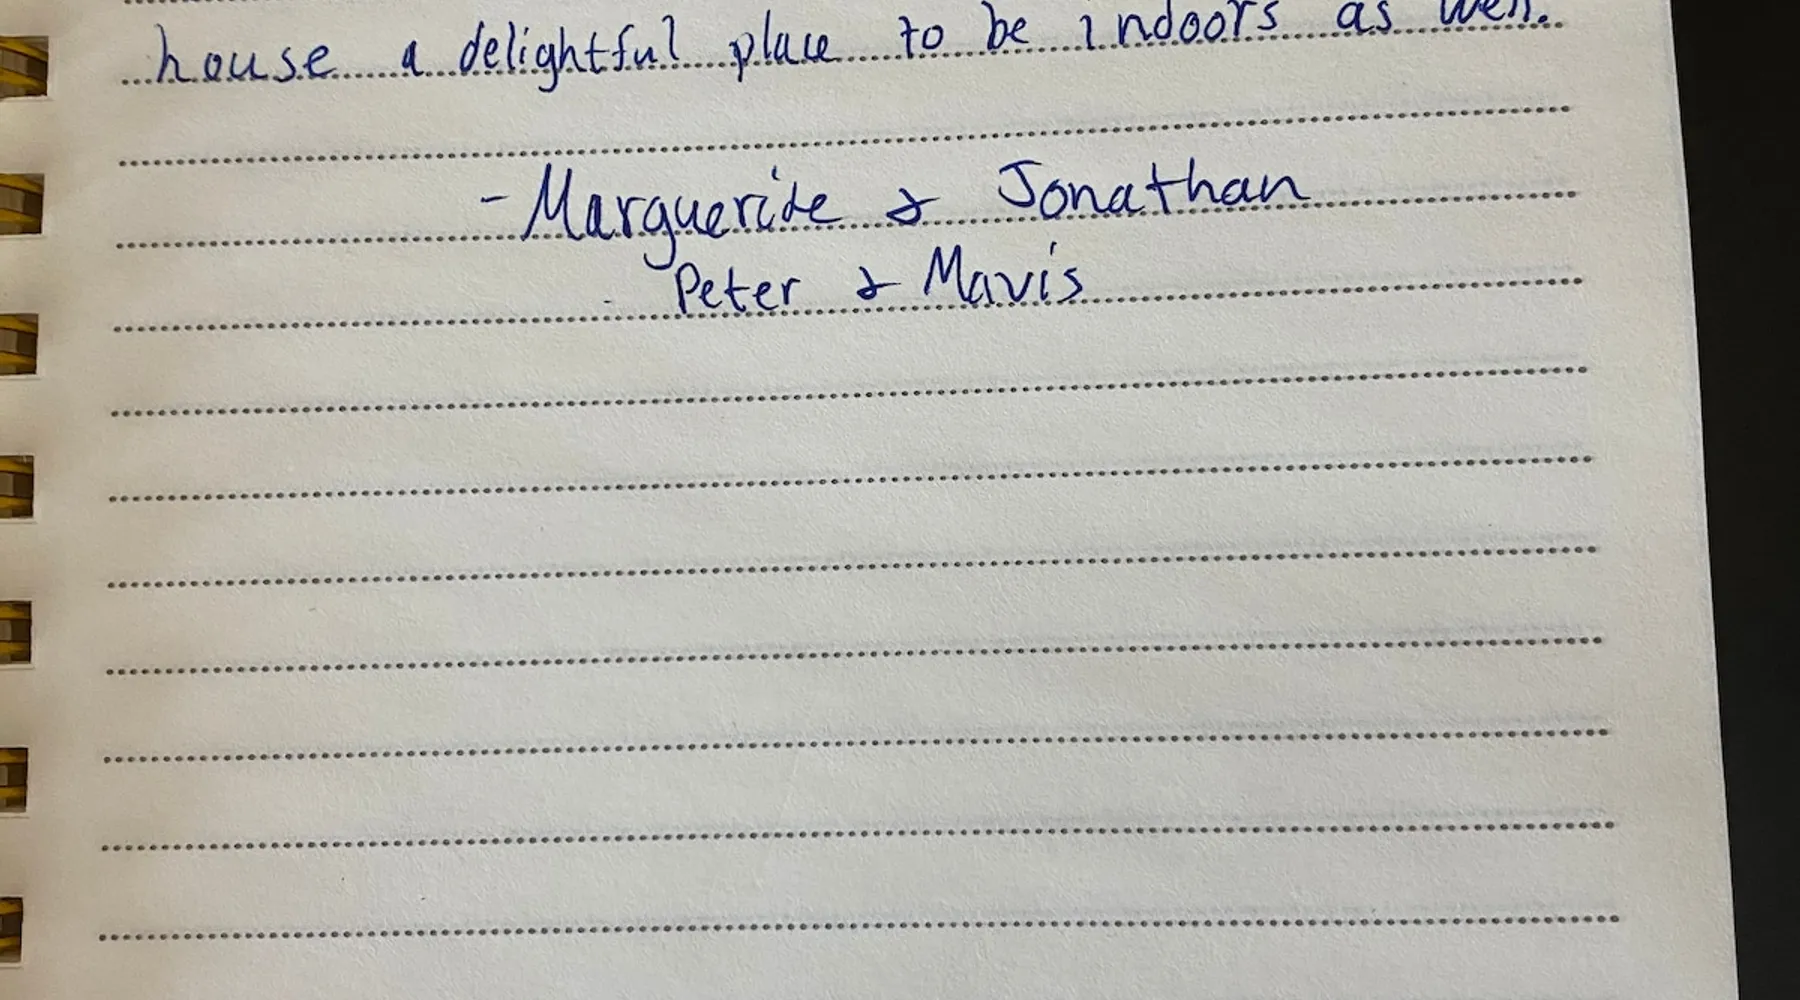 house a delightful place to be indoors as well.
- Marguerite & Jonathan
Peter & Mavis